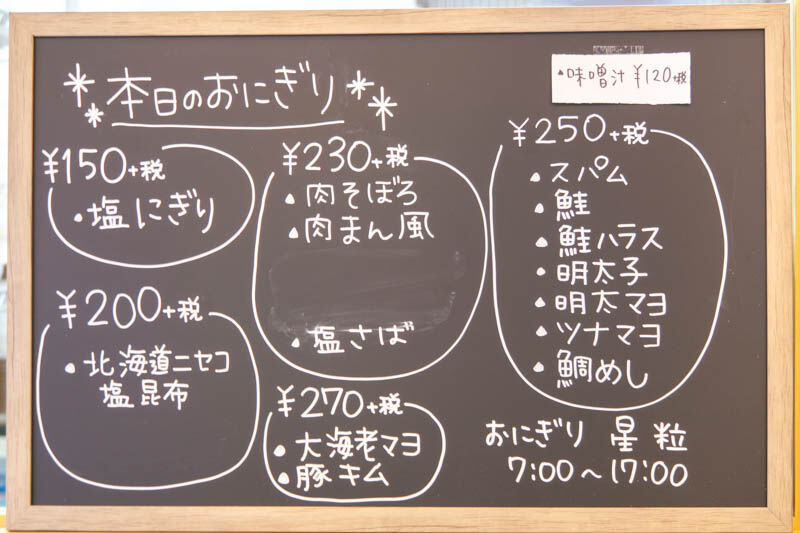 本日のおにぎり
・味噌汁 ¥120+税
¥150+税
・塩にぎり
¥200+税
・北海道ニセコ
塩昆布
¥230+税
・肉そぼろ
・肉まん風
・塩さば
¥270+税
・大海老マヨ
・豚キム
¥250+税
・スパム
・鮭
・鮭ハラス
・明太子
・明太マヨ
・ツナマヨ
・鯛めし
おにぎり 星粒
7:00〜17:00